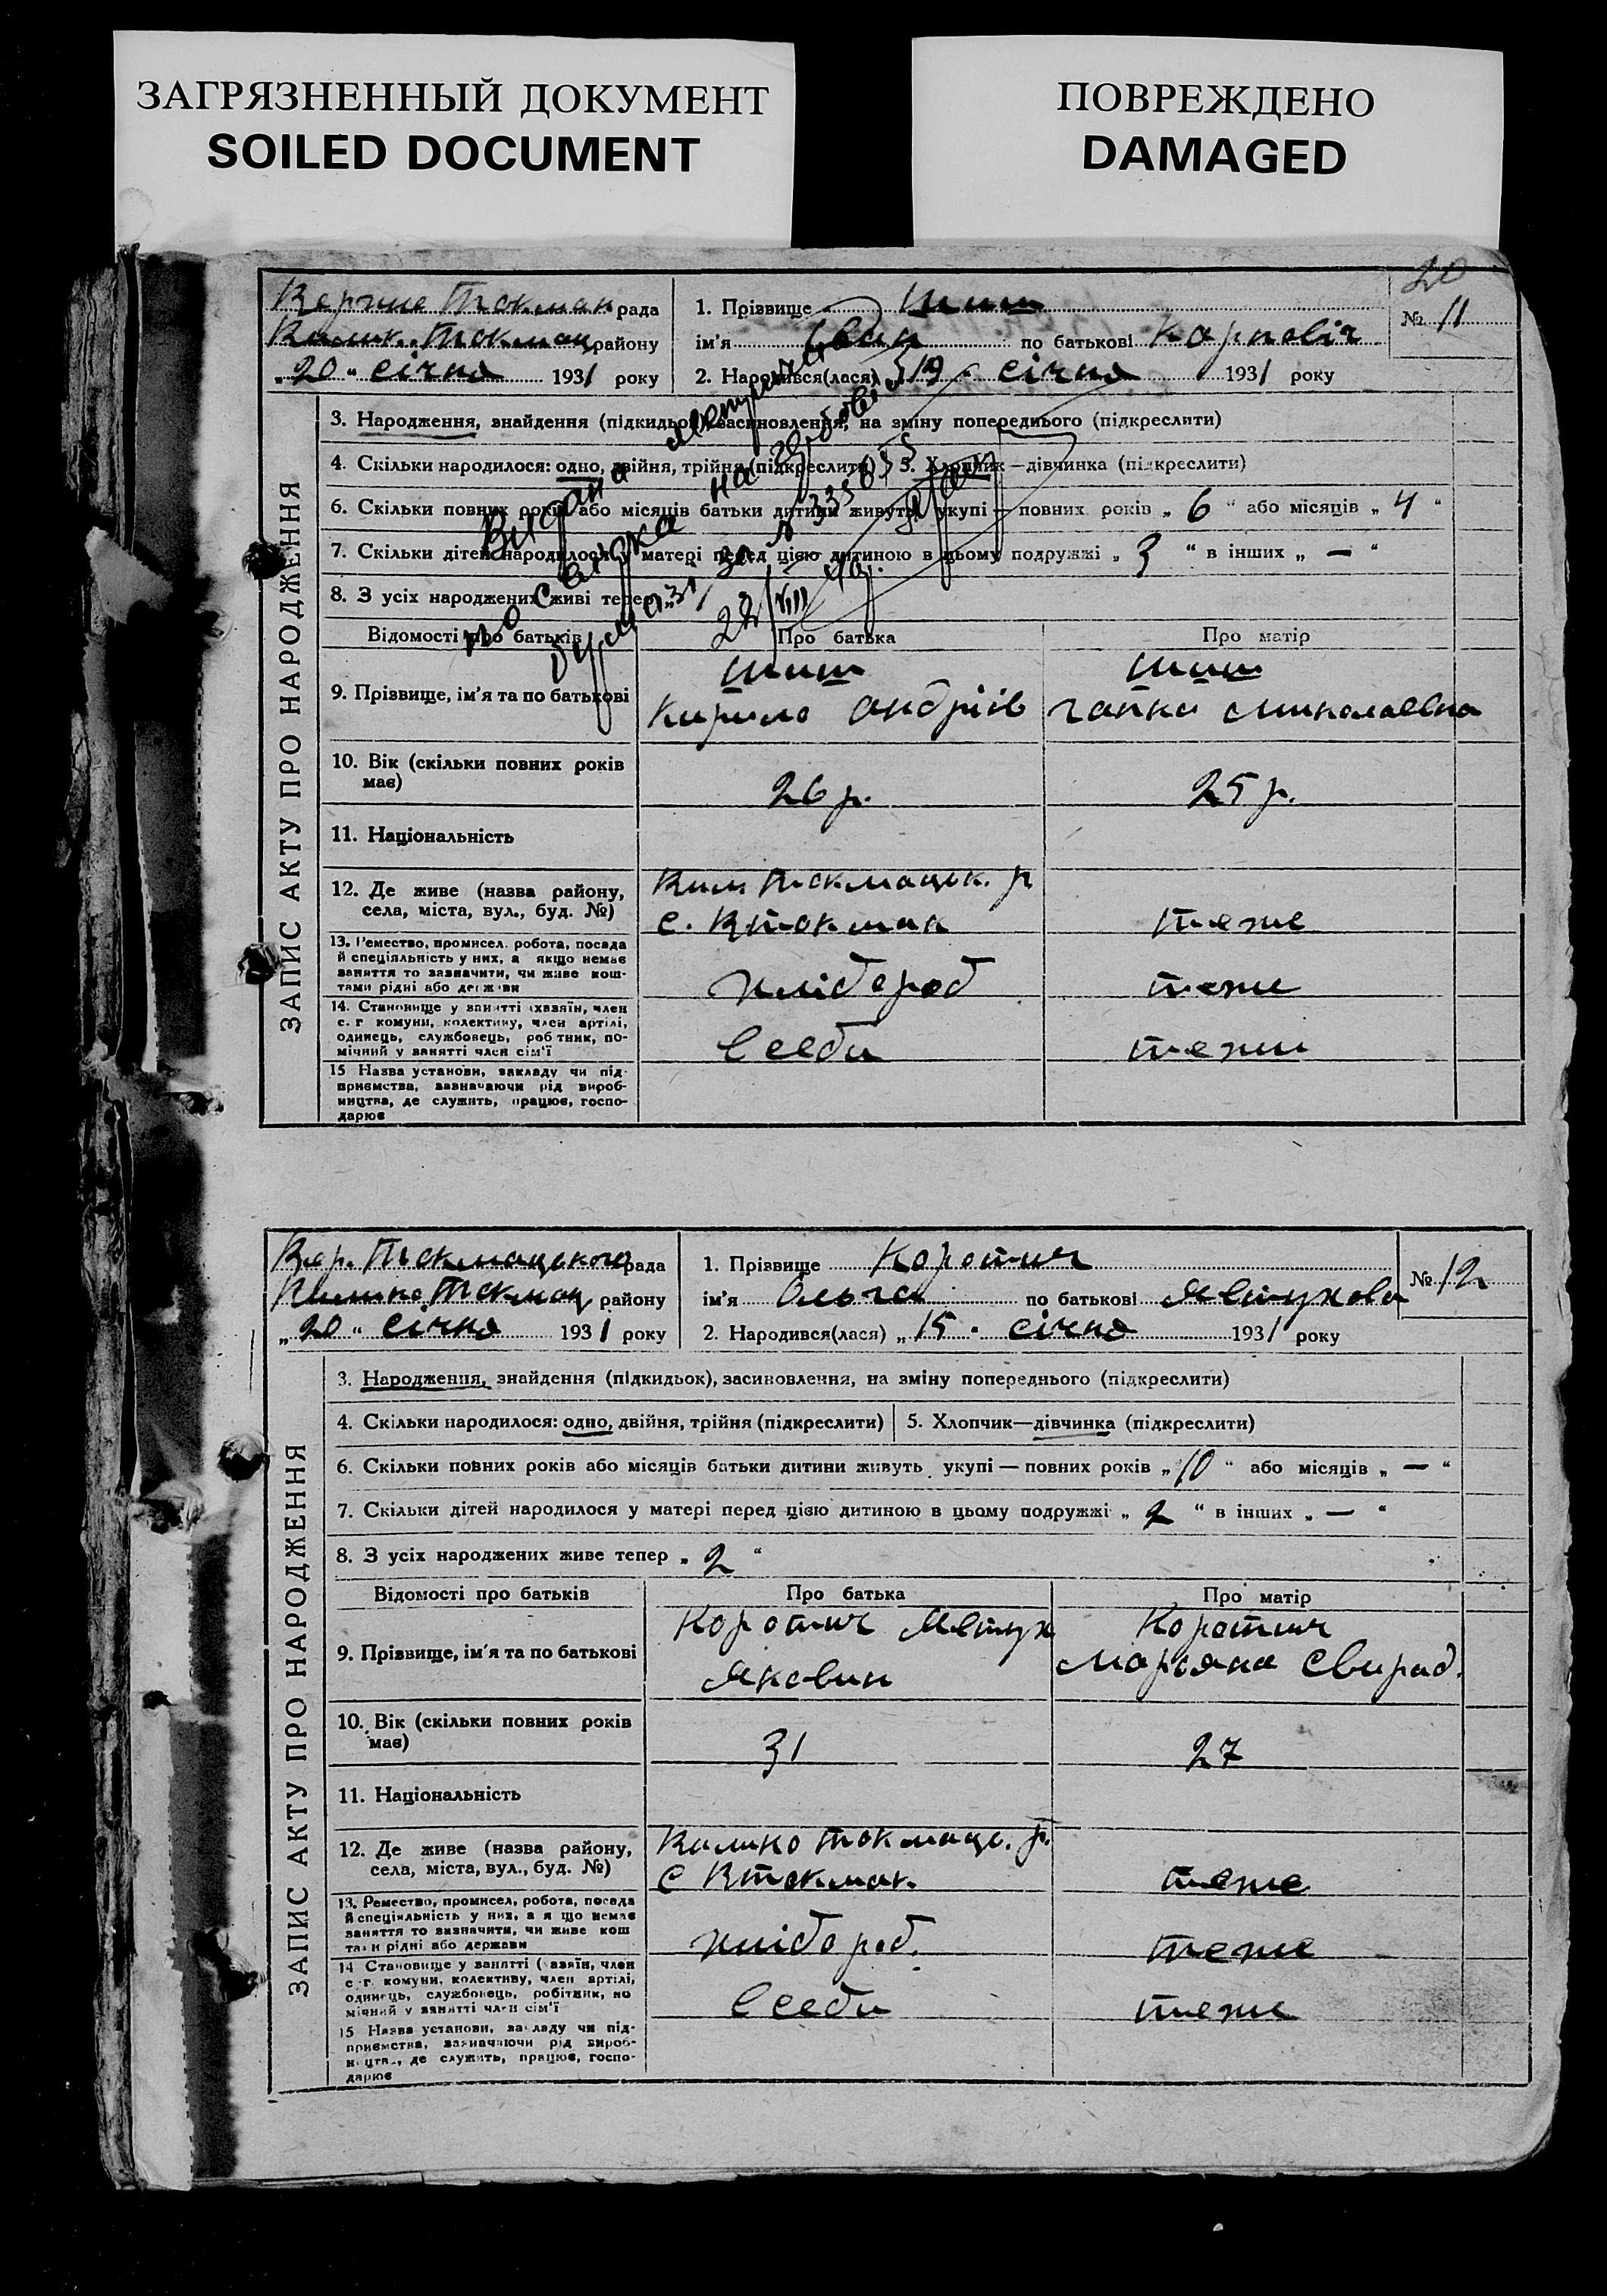 ЗАГРЯЗНЕННЫЙ ДОКУМЕНТ
SOILED DOCUMENT
ПОВРЕЖДЕНО
DAMAGED
20
ЗАПИС АКТУ ПРО НАРОДЖЕННЯ
Верхне Токмак рада
Токмац. району
„20“ січня 1931 року
1. Прізвище Шиш
ім'я Іван по батькові
№ 11
2. Народився(лася) „19“ січня 1931 року
3. Народження, знайдення (підкидьок), засиновлення, на зміну попереднього (підкреслити)
4. Скільки народилося: одно, двійня, трійня (підкреслити) 5. Хлопчик—дівчинка (підкреслити)
6. Скільки повних років або місяців батьки дитини живуть укупі — повних років „6“ або місяців „4“
7. Скільки дітей народилося у матері перед цією дитиною в цьому подружжі „3“ в інших „—“
8. З усіх народжених живі тепер „
Видана метрика
на
22/VIII
Відомості про батьків Про батька Про матір
9. Прізвище, ім'я та по батькові
Шиш
Кирило Андріїв
Шиш
Миколаевна
10. Вік (скільки повних років має)
26 р. 25 р.
11. Національність
12. Де живе (назва району, села, міста, вул., буд. №)
Токмацьк. р
с. ВТокмак теже
13. Ремество, промисел, робота, посада
й спеціяльність у них, а якщо немає
заняття то зазначити, чи живе кош-
тами рідні або держави
хлібороб теже
14. Становище у занятті (хазяїн, член
с. г. комуни, колективу, член артілі,
одинець, службовець, робітник, по-
мічний у занятті член сім'ї
В себе теже
15 Назва установи, закладу чи під-
приємства, зазначаючи рід вироб-
ництва, де служить, працює, госпо-
дарює
ЗАПИС АКТУ ПРО НАРОДЖЕННЯ
Вер. Токмацького рада
Токмац району
„20“ січня 1931 року
1. Прізвище Коротич
ім'я Ольга по батькові Явтухова
№ 12
2. Народився(лася) „15“ січня 1931 року
3. Народження, знайдення (підкидьок), засиновлення, на зміну попереднього (підкреслити)
4. Скільки народилося: одно, двійня, трійня (підкреслити) 5. Хлопчик—дівчинка (підкреслити)
6. Скільки повних років або місяців батьки дитини живуть укупі — повних років „10“ або місяців „—“
7. Скільки дітей народилося у матері перед цією дитиною в цьому подружжі „2“ в інших „—“
8. З усіх народжених живе тепер „2“
Відомості про батьків Про батька Про матір
9. Прізвище, ім'я та по батькові
Коротич Явтух
Якович
Коротич
Мар'яна Свирид.
10. Вік (скільки повних років має)
31 27
11. Національність
12. Де живе (назва району, села, міста, вул., буд. №)
Токмацьк. р.
с ВТокмак теже
13. Ремество, промисел, робота, посада
й спеціяльність у них, а якщо немає
заняття то визначити, чи живе кош
тами рідні або держави
хлібороб. теже
14 Становище у занятті (хазяїн, член
с. г. комуни, колективу, член артілі,
одинець, службовець, робітник, по
мічний у занятті член сім'ї
В себе теже
15 Назва установи, закладу чи під-
приємства, зазначаючи рід вироб-
ництва, де служить, працює, госпо-
дарює